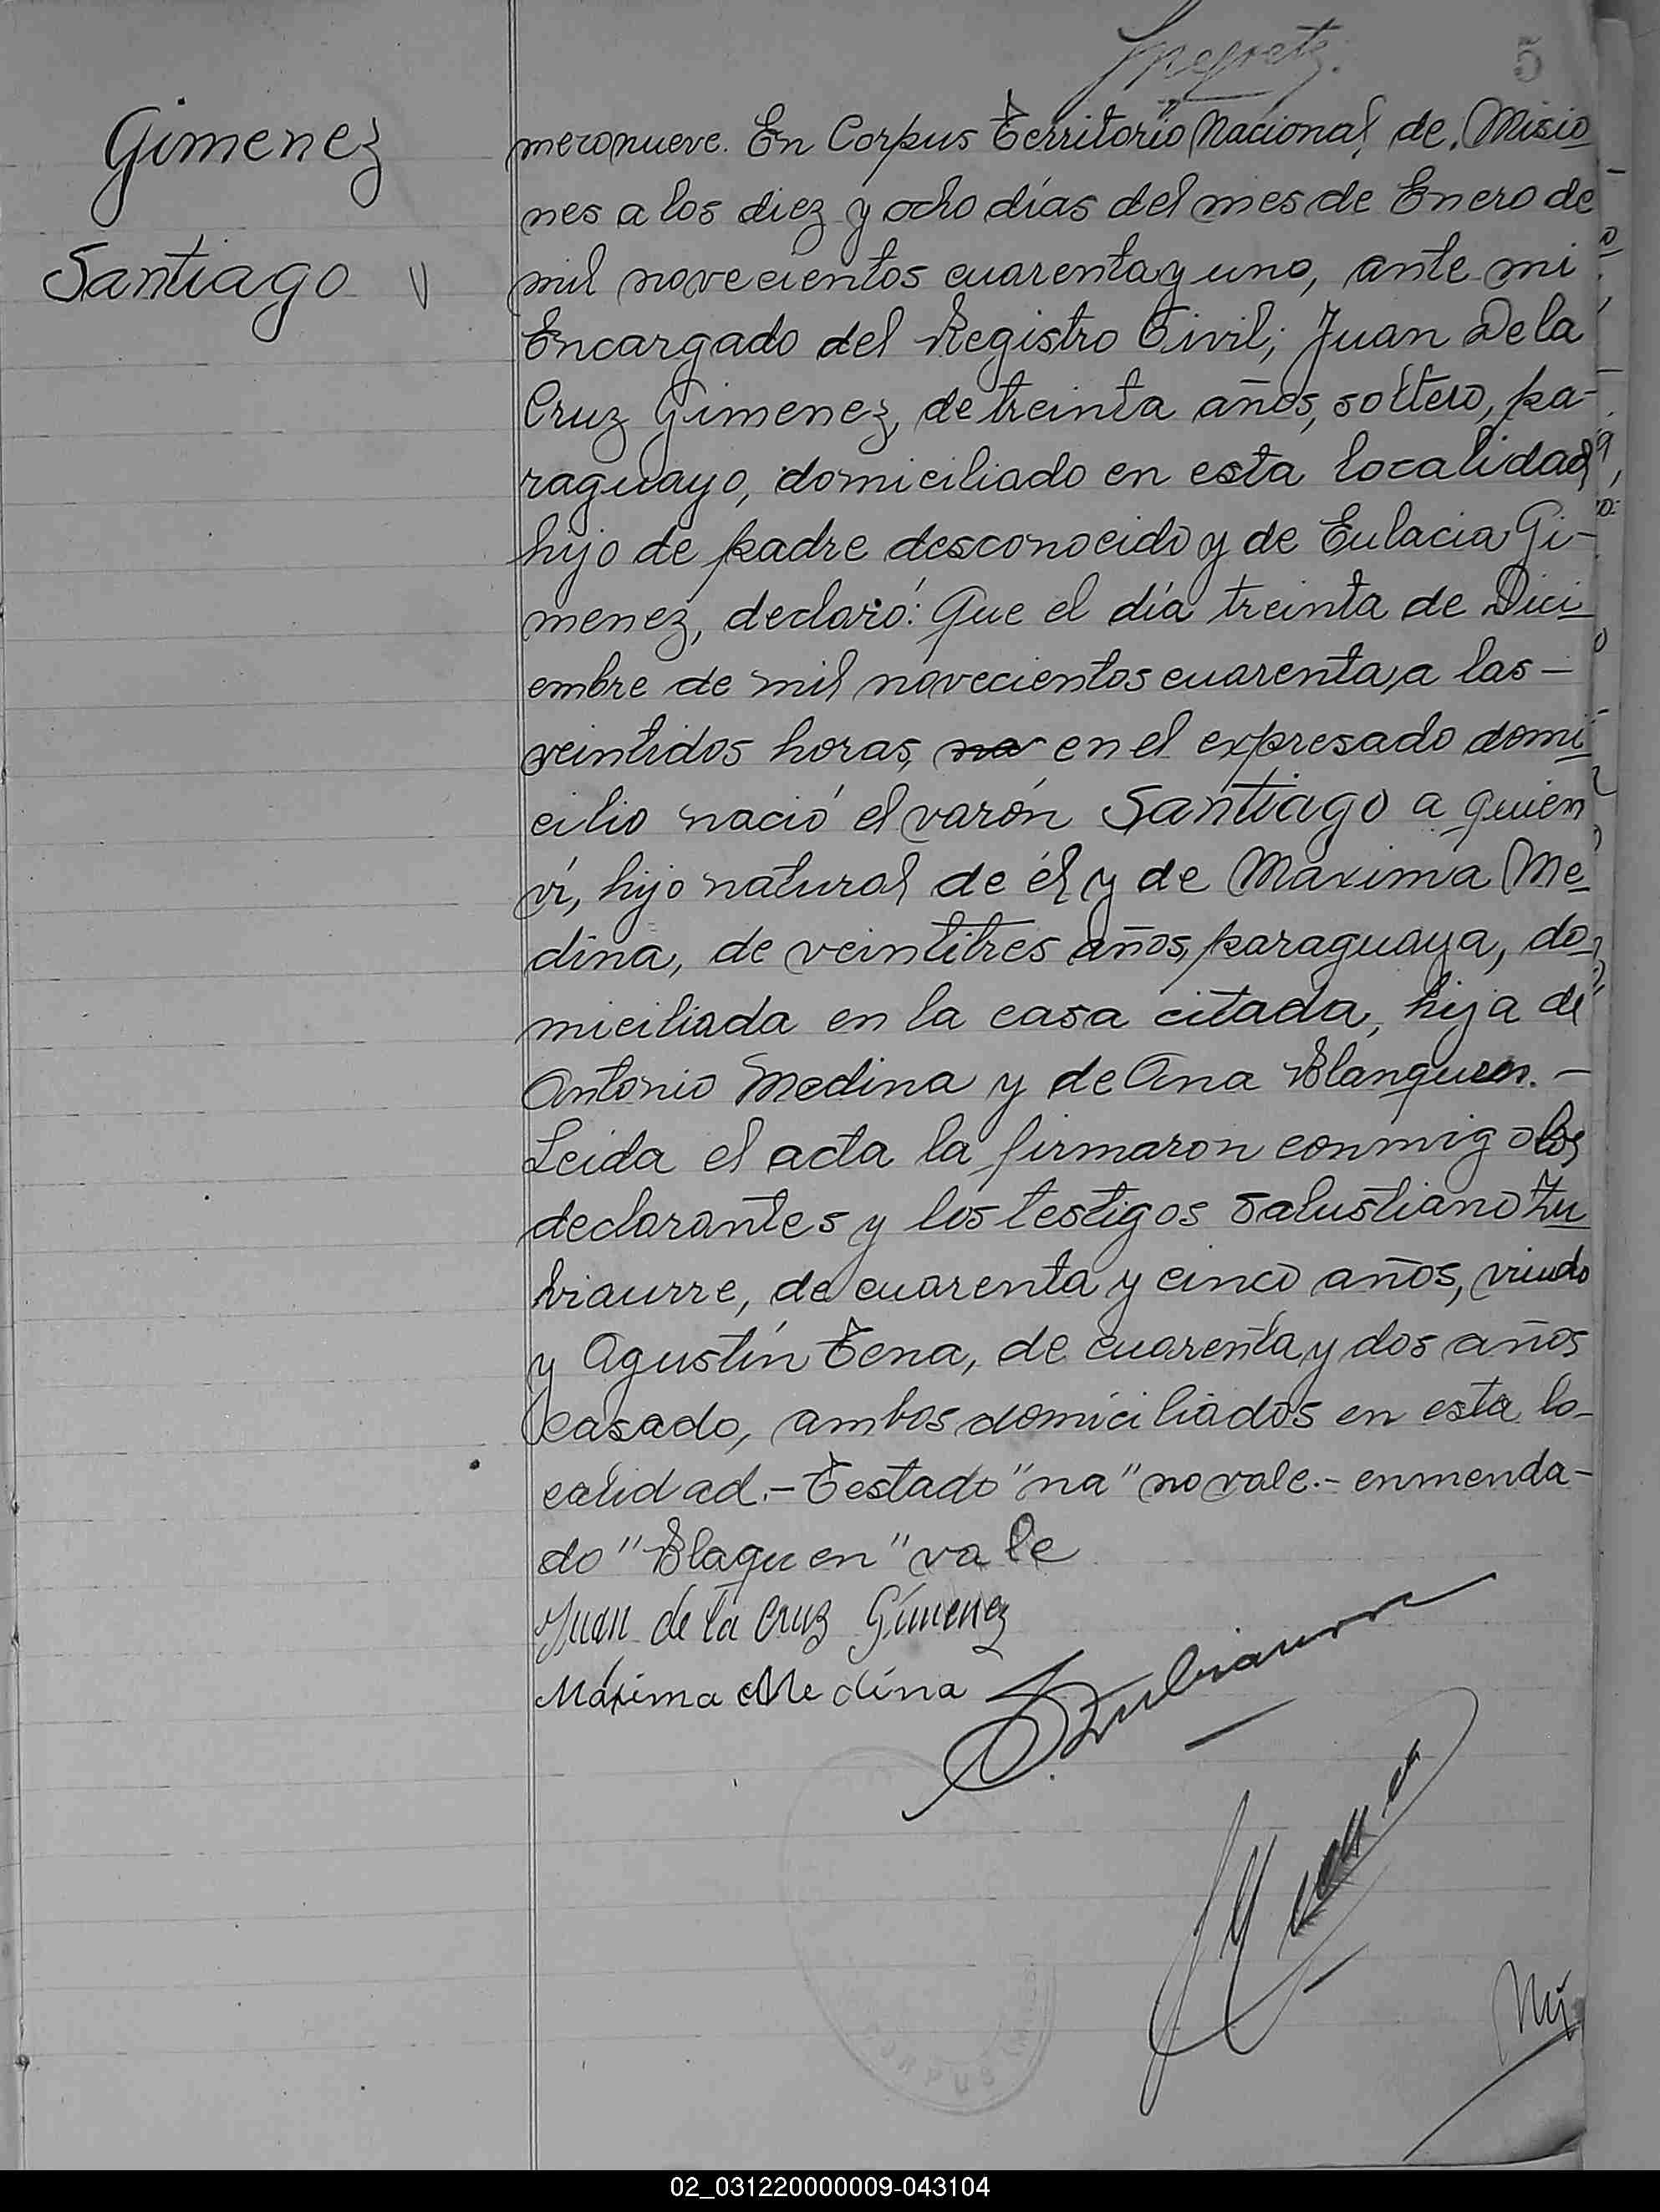 5
Gimenez
Santiago
mero nueve. En Corpus Territorio Nacional de Misio
nes a los diez y ocho días del mes de Enero de
mil novecientos cuarenta y uno, ante mi
Encargado del Registro Civil; Juan De la
Cruz Gimenez, de treinta años, soltero, pa-
raguayo, domiciliado en esta localidad,
hijo de padre desconocido y de Eulacia Gi-
menez, declaró: Que el día treinta de Dici
embre de mil novecientos cuarenta, a las -
veintidos horas, na en el expresado domi
cilio nació el varón Santiago a quien
ví, hijo natural de él y de Maxima Me
dina, de veintitres años, paraguaya, do
miciliada en la casa citada, hija de
Antonio Medina y de Ana Blanquen. -
Leida el acta la firmaron conmigo los
declarantes y los testigos Salustiano Zu
biaurre, de cuarenta y cinco años, viudo
y Agustín Tena, de cuarenta y dos años
casado, ambos domiciliados en esta lo-
calidad.- Testado "na" no vale.- enmenda-
do "Blaquen" vale
Juan de la Cruz Gimenez
Máxima Medina
SZubiaurre
02_031220000009-043104